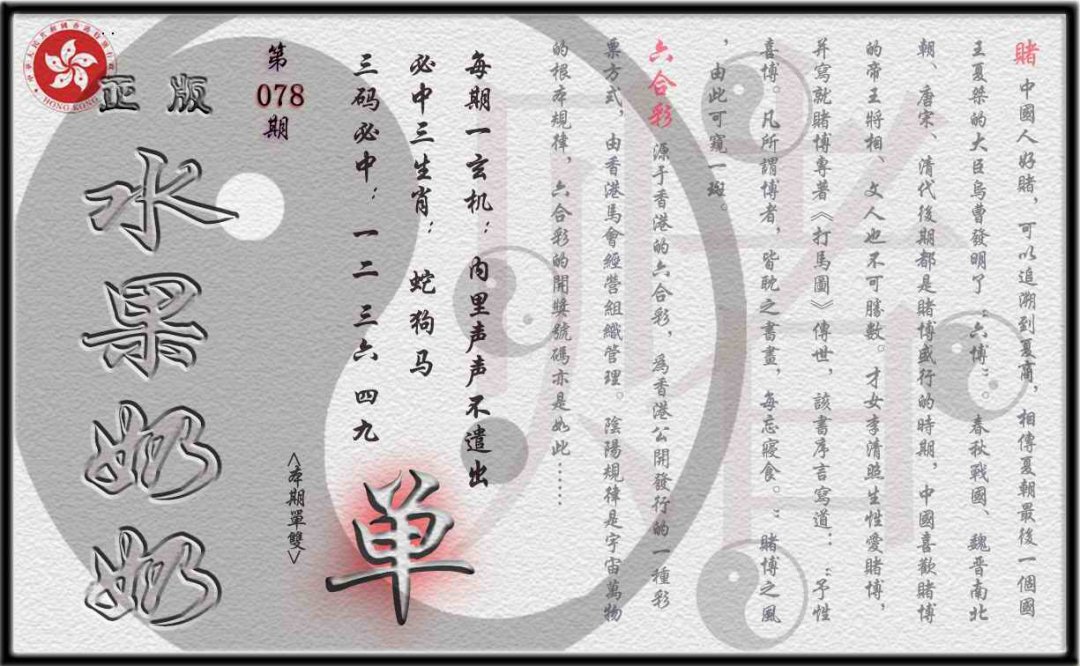 賭 中國人好賭，可以追溯到夏商，相傳夏朝最後一個國
王夏桀的大臣烏曹發明了“六博”。春秋戰國、魏晉南北
朝、唐宋、清代後期都是賭博盛行的時期，中國喜歡賭博
的帝王將相、文人也不可勝數。才女李清照生性愛賭博，
并寫就賭博專著《打馬圖》傳世，該書序言寫道：“予性
喜博。凡所謂博者，皆耽之書畫，每忘寢食。”賭博之風
，由此可窺一斑。
六合彩 源于香港的六合彩，為香港公開發行的一種彩
票方式，由香港馬會經營組織管理。陰陽規律是宇宙萬物
的根本規律，六合彩的開獎號碼亦是如此……
每期一玄机：内里声声不遣出
必中三生肖：蛇狗马
三码必中：一二三六四九
单
<本期單雙>
第
078
期
正版
水果奶奶
HONG KONG